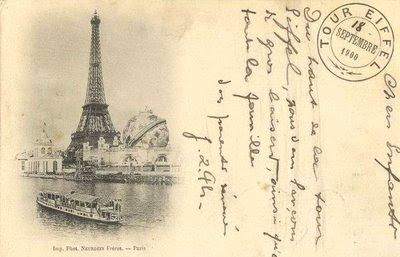 TOUR EIFFEL
18
SEPTEMBRE
1900
Chers Enfants
Du haut de la tour
Eiffel, nous vous lançons
de gros baisers ainsi qu'à
toute la famille
vos parents
Imp. Phot. NEURDEIN Frères. — Paris